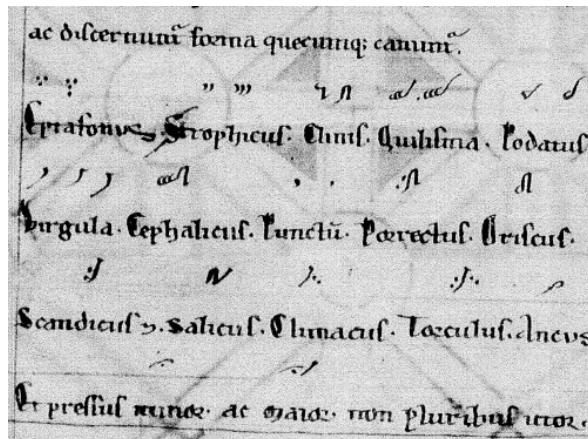 ac discernunt᷑ forma quecumq; canunt᷑.
Eptafonus, Strophicus. Clinis. Quilisma. Podatus
Virgula. Cephalicus. Punctū. Porrectus. Oriscus.
Scandicus ⁊. Salicus. Climacus. Torculus. Ancus
Et pressus minor. ac maior. non pluribus utor.